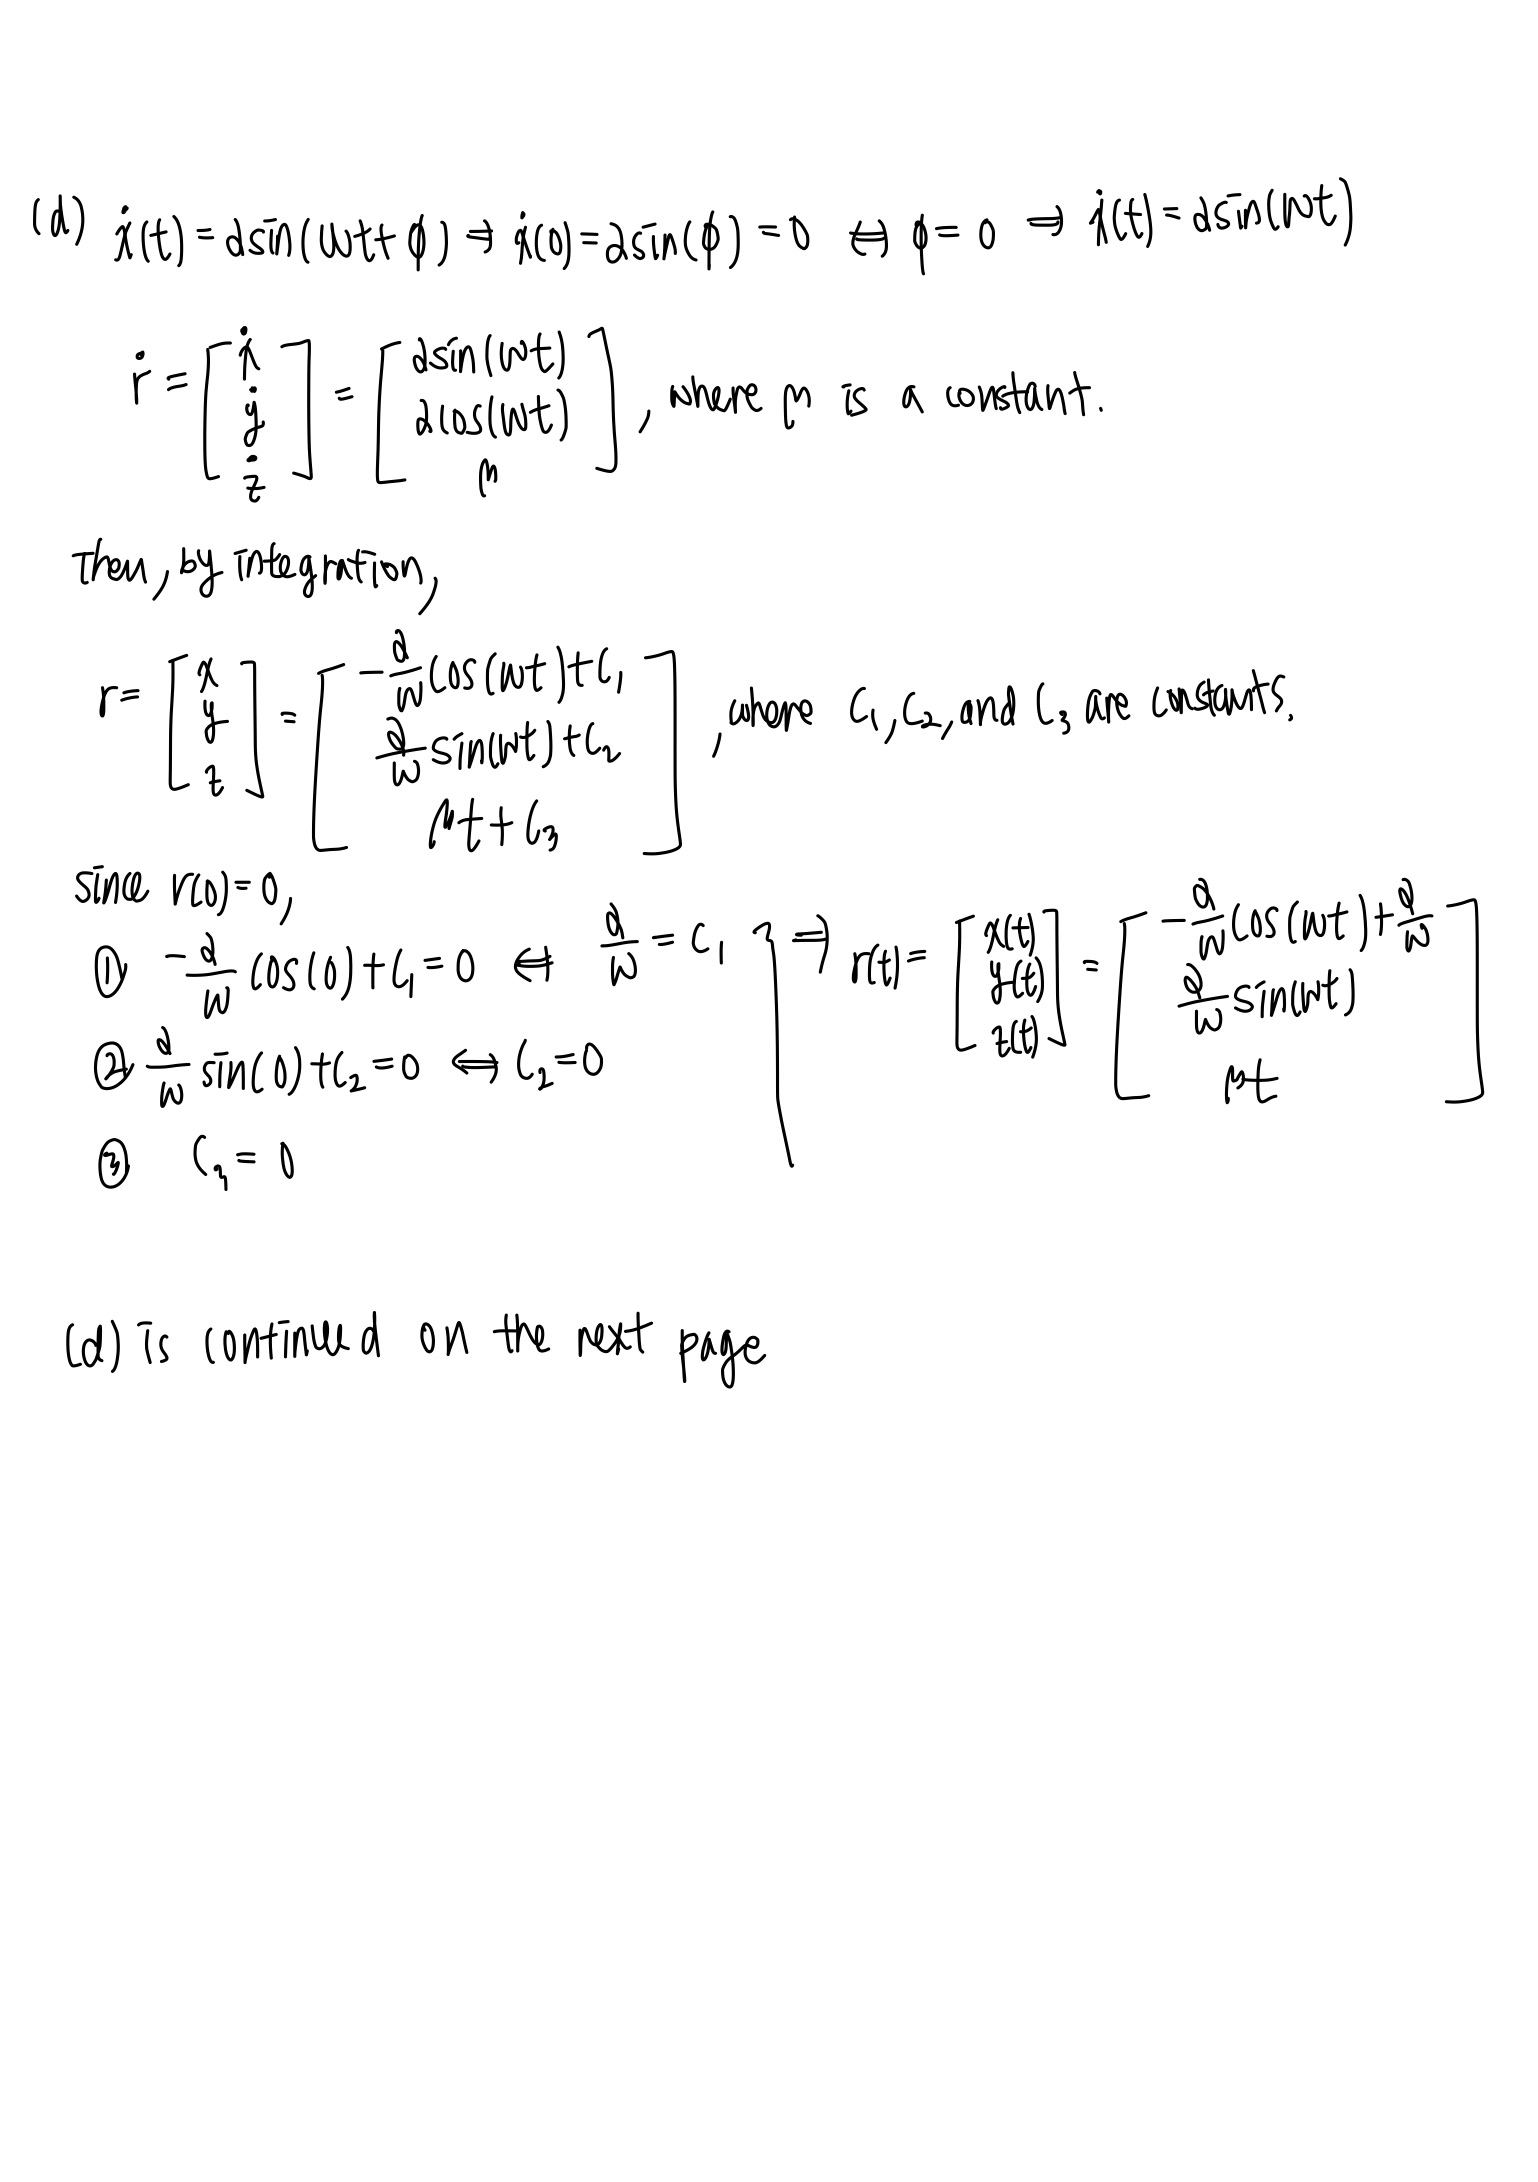 (d) ẋ(t) = α sin(ωt + ϕ) ⇒ ẋ(0) = α sin(ϕ) = 0 ⇔ ϕ = 0 ⇒ ẋ(t) = α sin(ωt)
ṙ = [ẋ ẏ ż] = [α sin(ωt) α cos(ωt) μ], where μ is a constant.
Then, by integration,
r = [x y z] = [-α/ω cos(ωt) + C₁ α/ω sin(ωt) + C₂ μt + C₃], where C₁, C₂, and C₃ are constants.
since r(0) = 0,
① -α/ω cos(0) + C₁ = 0 ⇔ α/ω = C₁
② α/ω sin(0) + C₂ = 0 ⇔ C₂ = 0
③ C₃ = 0
} ⇒ r(t) = [x(t) y(t) z(t)] = [-α/ω cos(ωt) + α/ω α/ω sin(ωt) μt]
(d) is continued on the next page